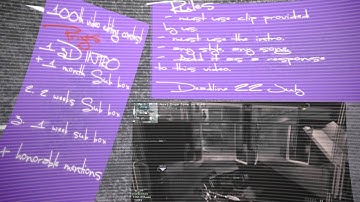 100k video edity contest
1. 3D INTRO
+ 1 month Sub box
2. 2 weeks Sub box
3. 1 week sub box
+ honorable mentions
Rules
- must use clip provided
by us
- must use the intro.
- any style any song
- Add it as a response
to this video.
Deadline 22 July